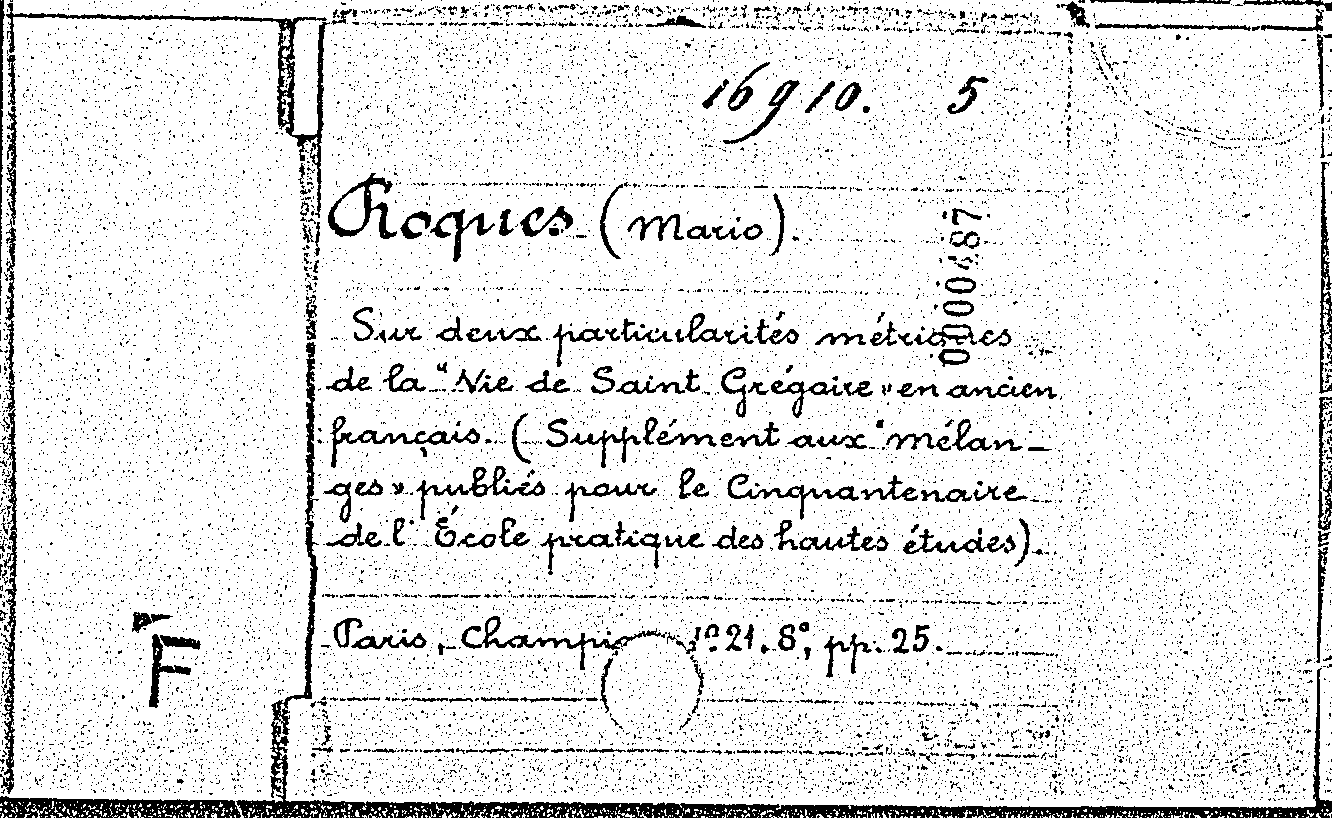 16910. 5
Roques (Mario).
0000487
Sur deux particularités métriques
de la "Vie de Saint Grégoire" en ancien
français. (Supplément aux "Mélan-
ges" publiés pour le Cinquantenaire
de l'École pratique des hautes études).
F
Paris, 21. 8°, pp. 25.